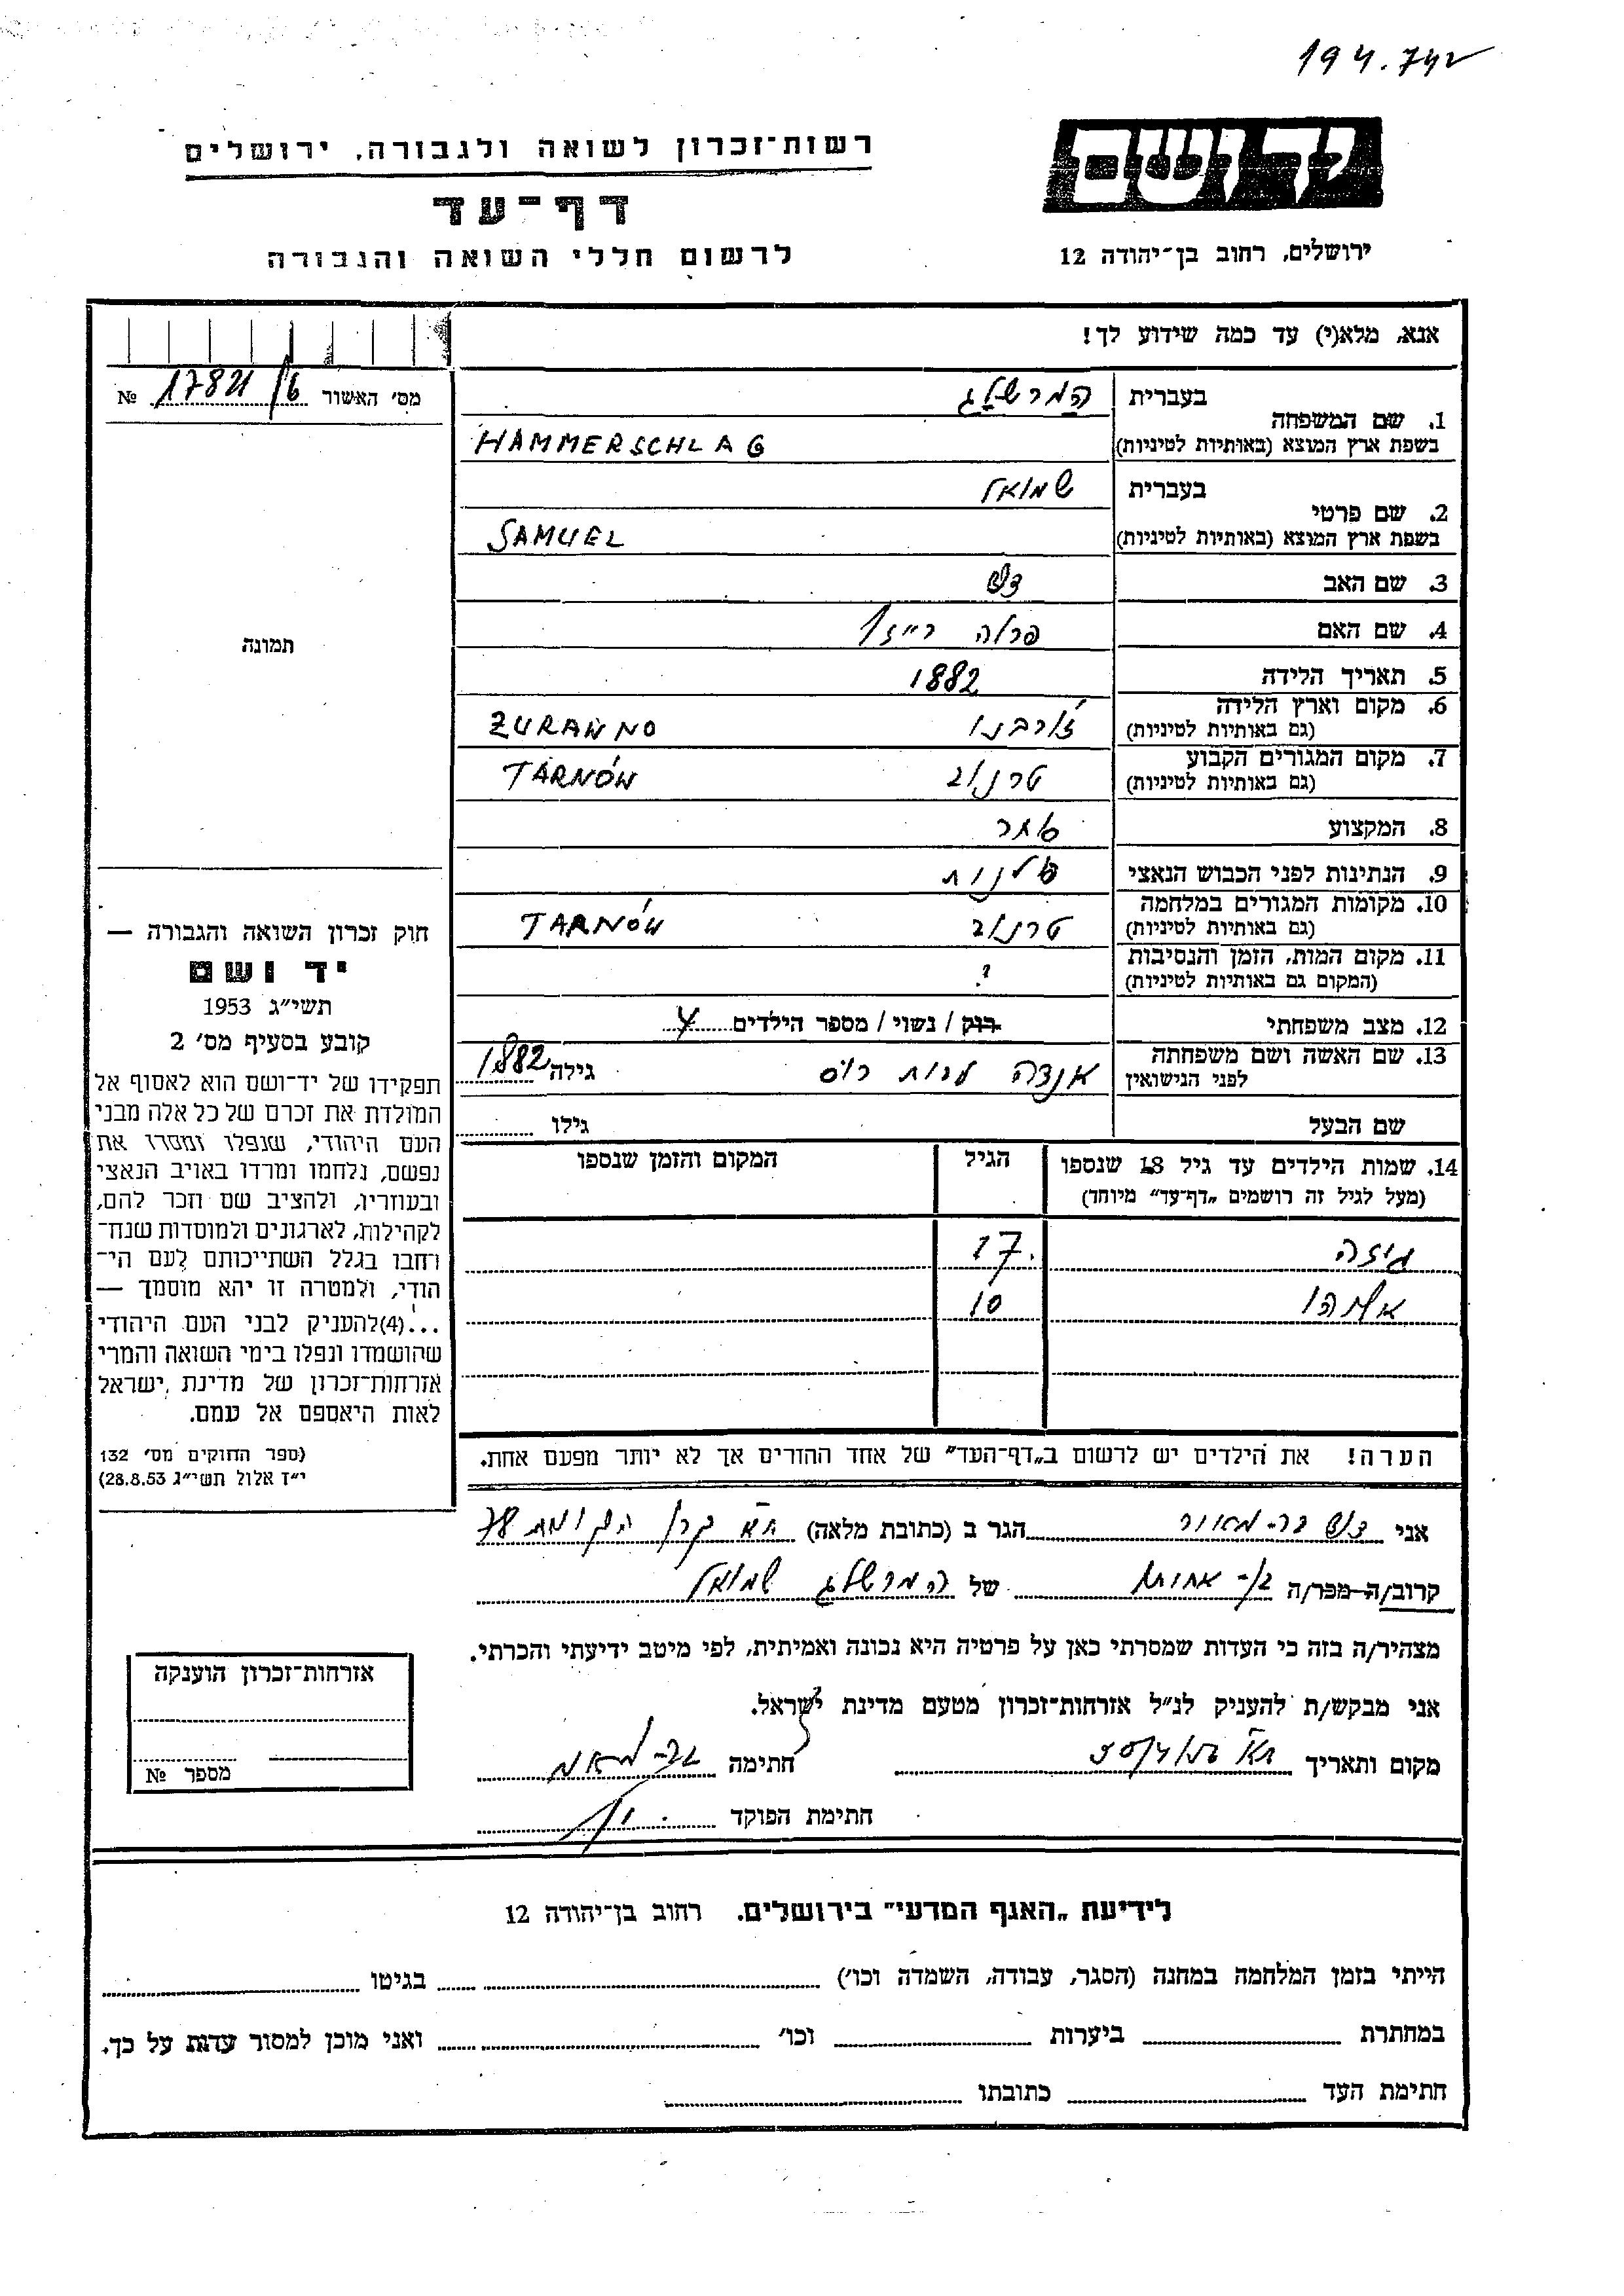 194.742
ידושם
רשות־זכרון לשואה ולגבורה, ירושלים
דף־עד
לרשום חללי השואה והגבורה
ירושלים, רחוב בן־יהודה 12
אנא, מלא(י) עד כמה שידוע לך!
מס׳ האשור 17821/6 №
תמונה
1. שם המשפחה
בעברית המרשלג
בשפת ארץ המוצא (באותיות לטיניות) HAMMERSCHLAG
2. שם פרטי
בעברית שמואל
בשפת ארץ המוצא (באותיות לטיניות) SAMUEL
3. שם האב
4. שם האם פרלה רייזל
5. תאריך הלידה 1882
6. מקום וארץ הלידה
(גם באותיות לטיניות) ז'ורבנו ZURAWNO
7. מקום המגורים הקבוע
(גם באותיות לטיניות) טרנוב TARNÓW
8. המקצוע סוחר
9. הנתינות לפני הכבוש הנאצי פולנית
10. מקומות המגורים במלחמה
(גם באותיות לטיניות) טרנוב TARNÓW
11. מקום המות, הזמן והנסיבות
(המקום גם באותיות לטיניות) ?
12. מצב משפחתי רוק / נשוי / מספר הילדים 4
13. שם האשה ושם משפחתה
לפני הנישואין רוס גילה 1882
שם הבעל גילו
14. שמות הילדים עד גיל 18 שנספו הגיל המקום והזמן שנספו
(מעל לגיל זה רושמים „דף־עד” מיוחד)
גיזה 17
אליהו 10
הערה! את הילדים יש לרשום ב„דף־העד” של אחד ההורים אך לא יותר מפעם אחת.
חוק זכרון השואה והגבורה —
יד ושם
תשי״ג 1953
קובע בסעיף מס׳ 2
תפקידו של יד־ושם הוא לאסוף אל
המולדת את זכרם של כל אלה מבני
העם היהודי, שנפלו ומסרו את
נפשם, נלחמו ומרדו באויב הנאצי
ובעוזריו, ולהציב שם וזכר להם,
לקהילות, לארגונים ולמוסדות שנח־
רחבו בגלל השתייכותם לעם הי־
הודי, ולמטרה זו יהא מוסמך —
...(4)להעניק לבני העם היהודי
שהושמדו ונפלו בימי השואה והמרי
אזרחות־זכרון של מדינת ישראל
לאות היאספם אל עמם.
(ספר החוקים מס׳ 132
י״ז אלול תשי״ג 28.8.53)
אני בר-מאור הגר ב (כתובת מלאה) ת"א קרן הקימת 78
קרוב/ה-מכר/ה בן-אחותו של המרשלג שמואל
מצהיר/ה בזה כי העדות שמסרתי כאן על פרטיה היא נכונה ואמיתית, לפי מיטב ידיעתי והכרתי.
אני מבקש/ת להעניק לנ״ל אזרחות־זכרון מטעם מדינת ישראל.
מקום ותאריך ת"א חתימה בר-מאור
חתימת הפוקד
אזרחות־זכרון הוענקה
מספר №
לידיעת „האגף המדעי” בירושלים, רחוב בן־יהודה 12
הייתי בזמן המלחמה במחנה (הסגר, עבודה, השמדה וכו׳) בגיטו
במחתרת ביערות וכו׳ ואני מוכן למסור עדות על כך.
חתימת העד כתובתו